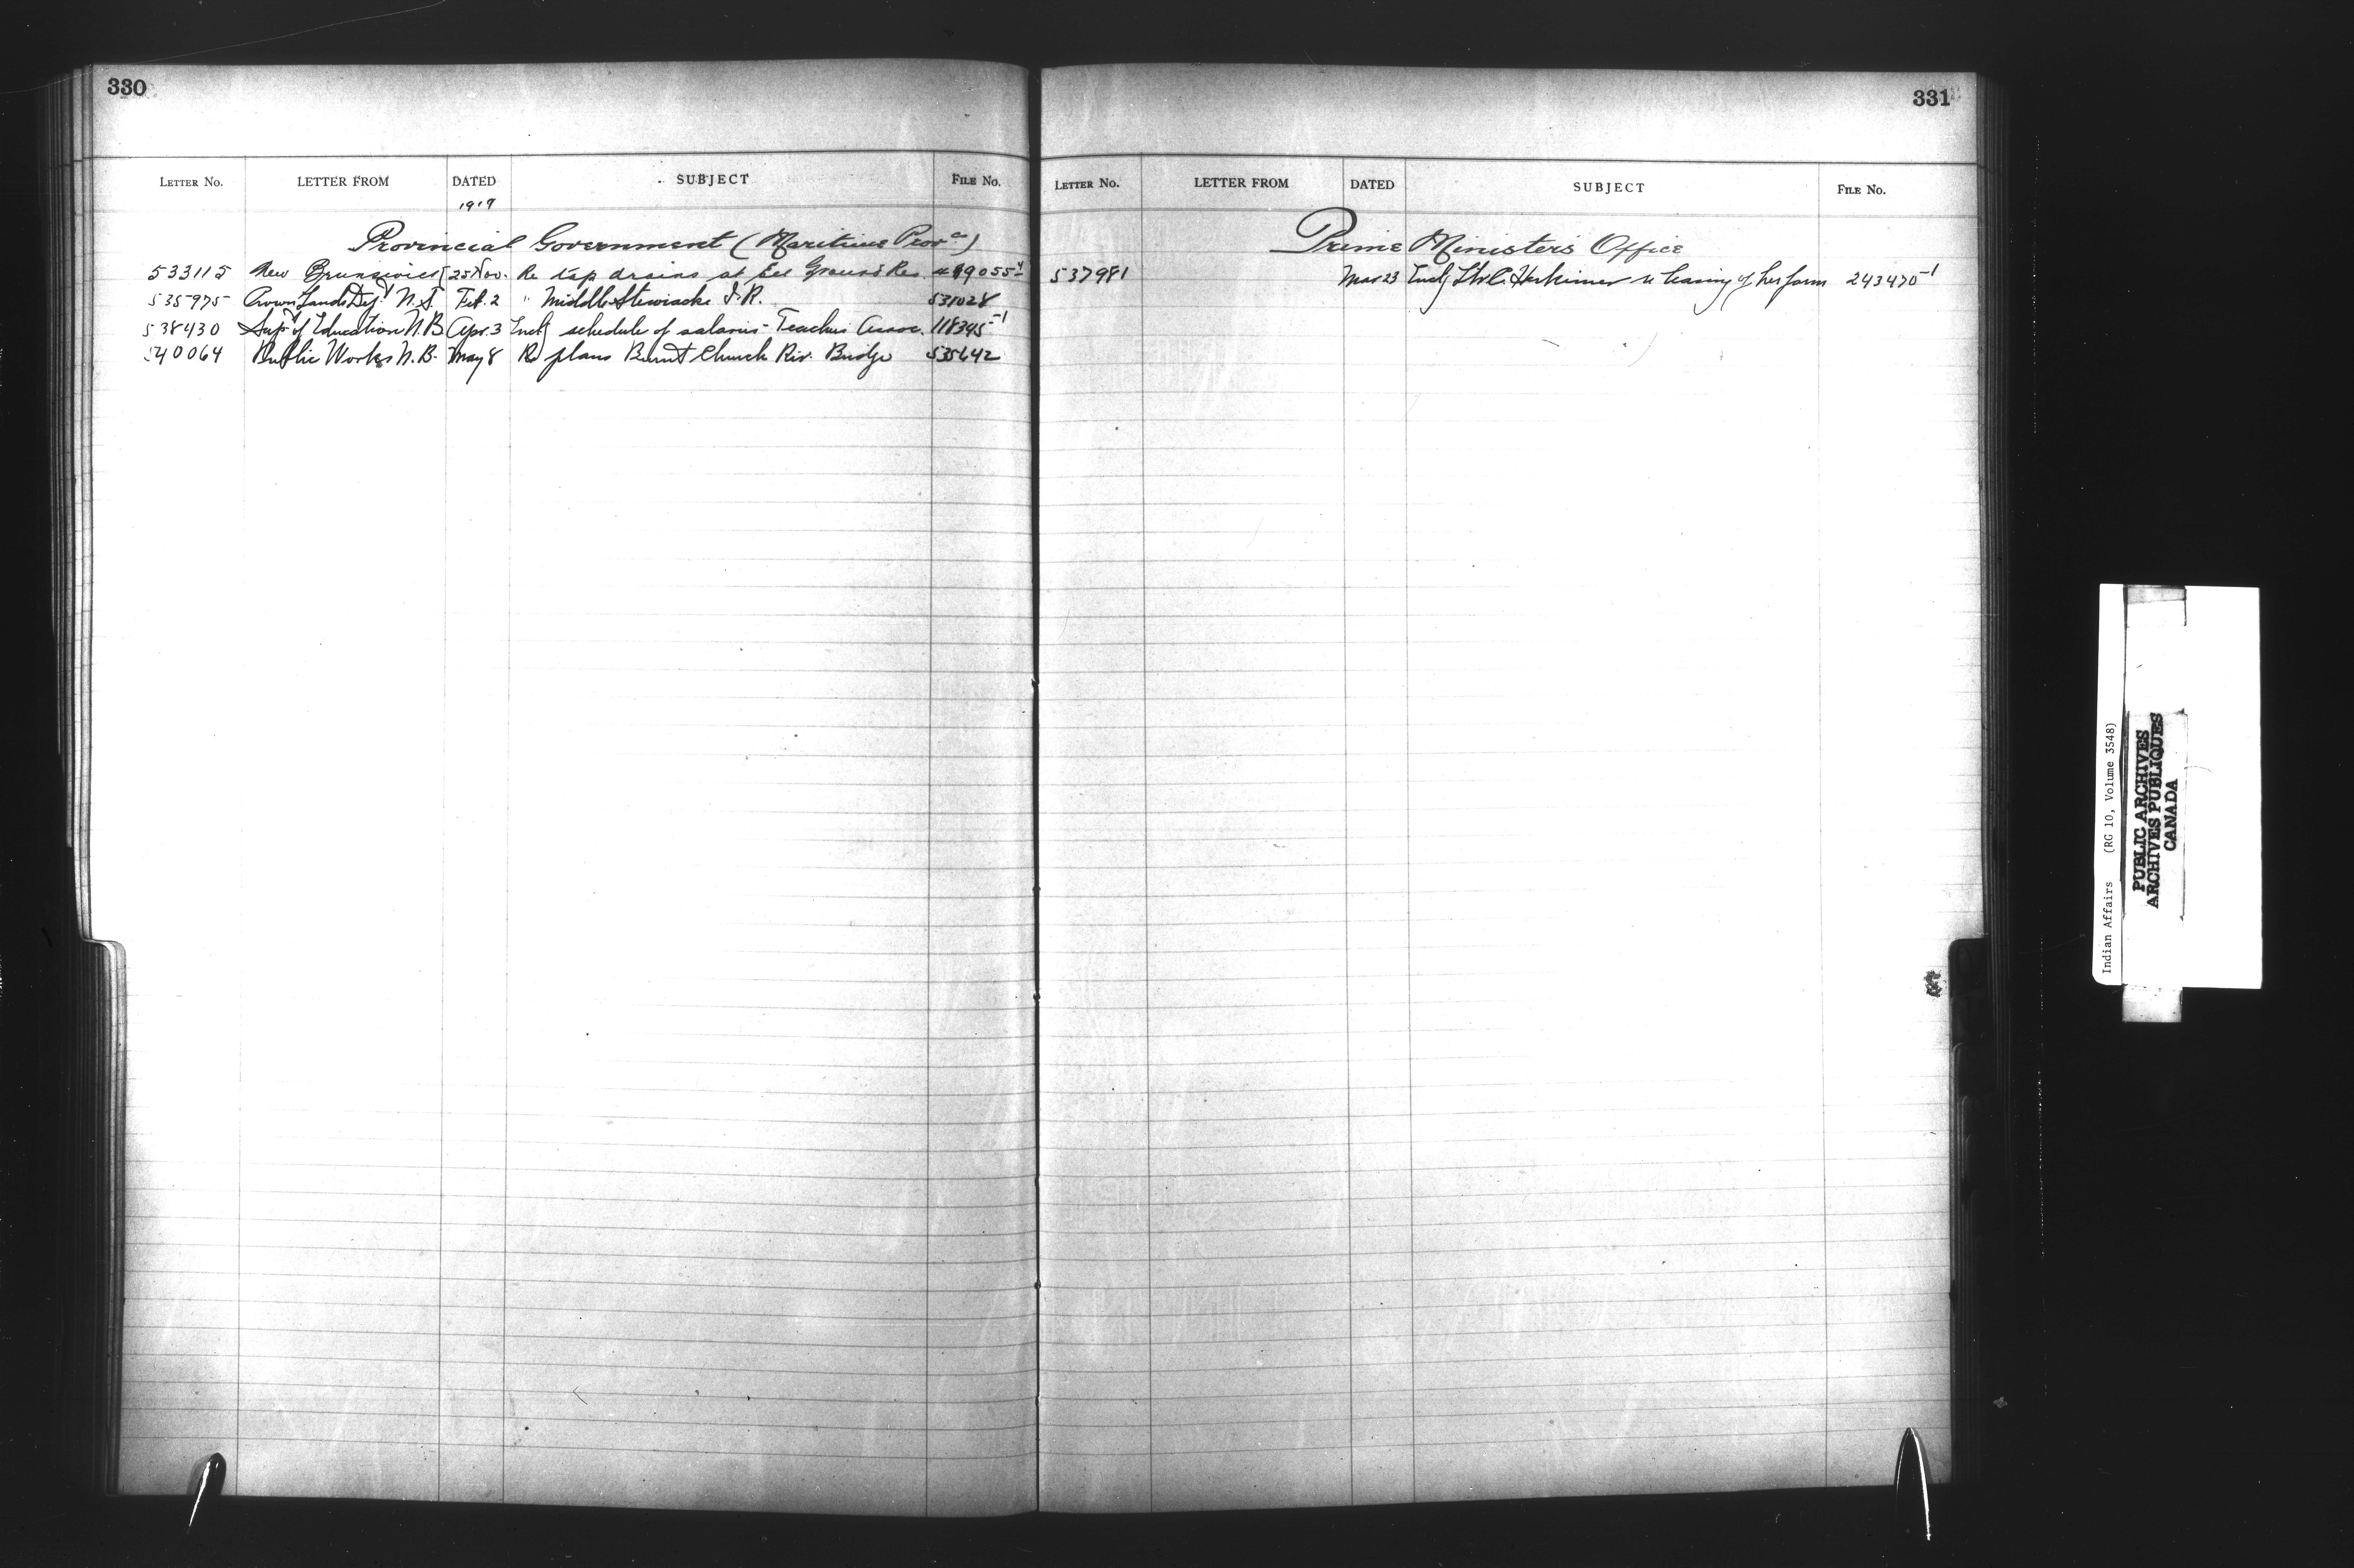 330
LETTER No. LETTER FROM DATED SUBJECT FILE No.
1919
Provincial Government (Maritime Provce)
533115 New Brunswick 25 Nov. Re tap drains at Eel Ground Res. 419055-4
535975 Crown Lands Dept N.S. Feb. 2 " Middle Stewiacke I.R. 531028
538430 Supt of Education N.B. Apr. 3 Encl schedule of salaries - Teachers Assoc. 118395-1
540064 Public Works N.B. May 8 Re plans Burnt Church Riv. Bridge 535642
331
LETTER No. LETTER FROM DATED SUBJECT FILE No.
Prime Minister's Office
537981 Mar 23 Encl Herkimer re leasing of her farm 243470-1
Indian Affairs (RG 10, Volume 3548)
PUBLIC ARCHIVES
ARCHIVES PUBLIQUES
CANADA